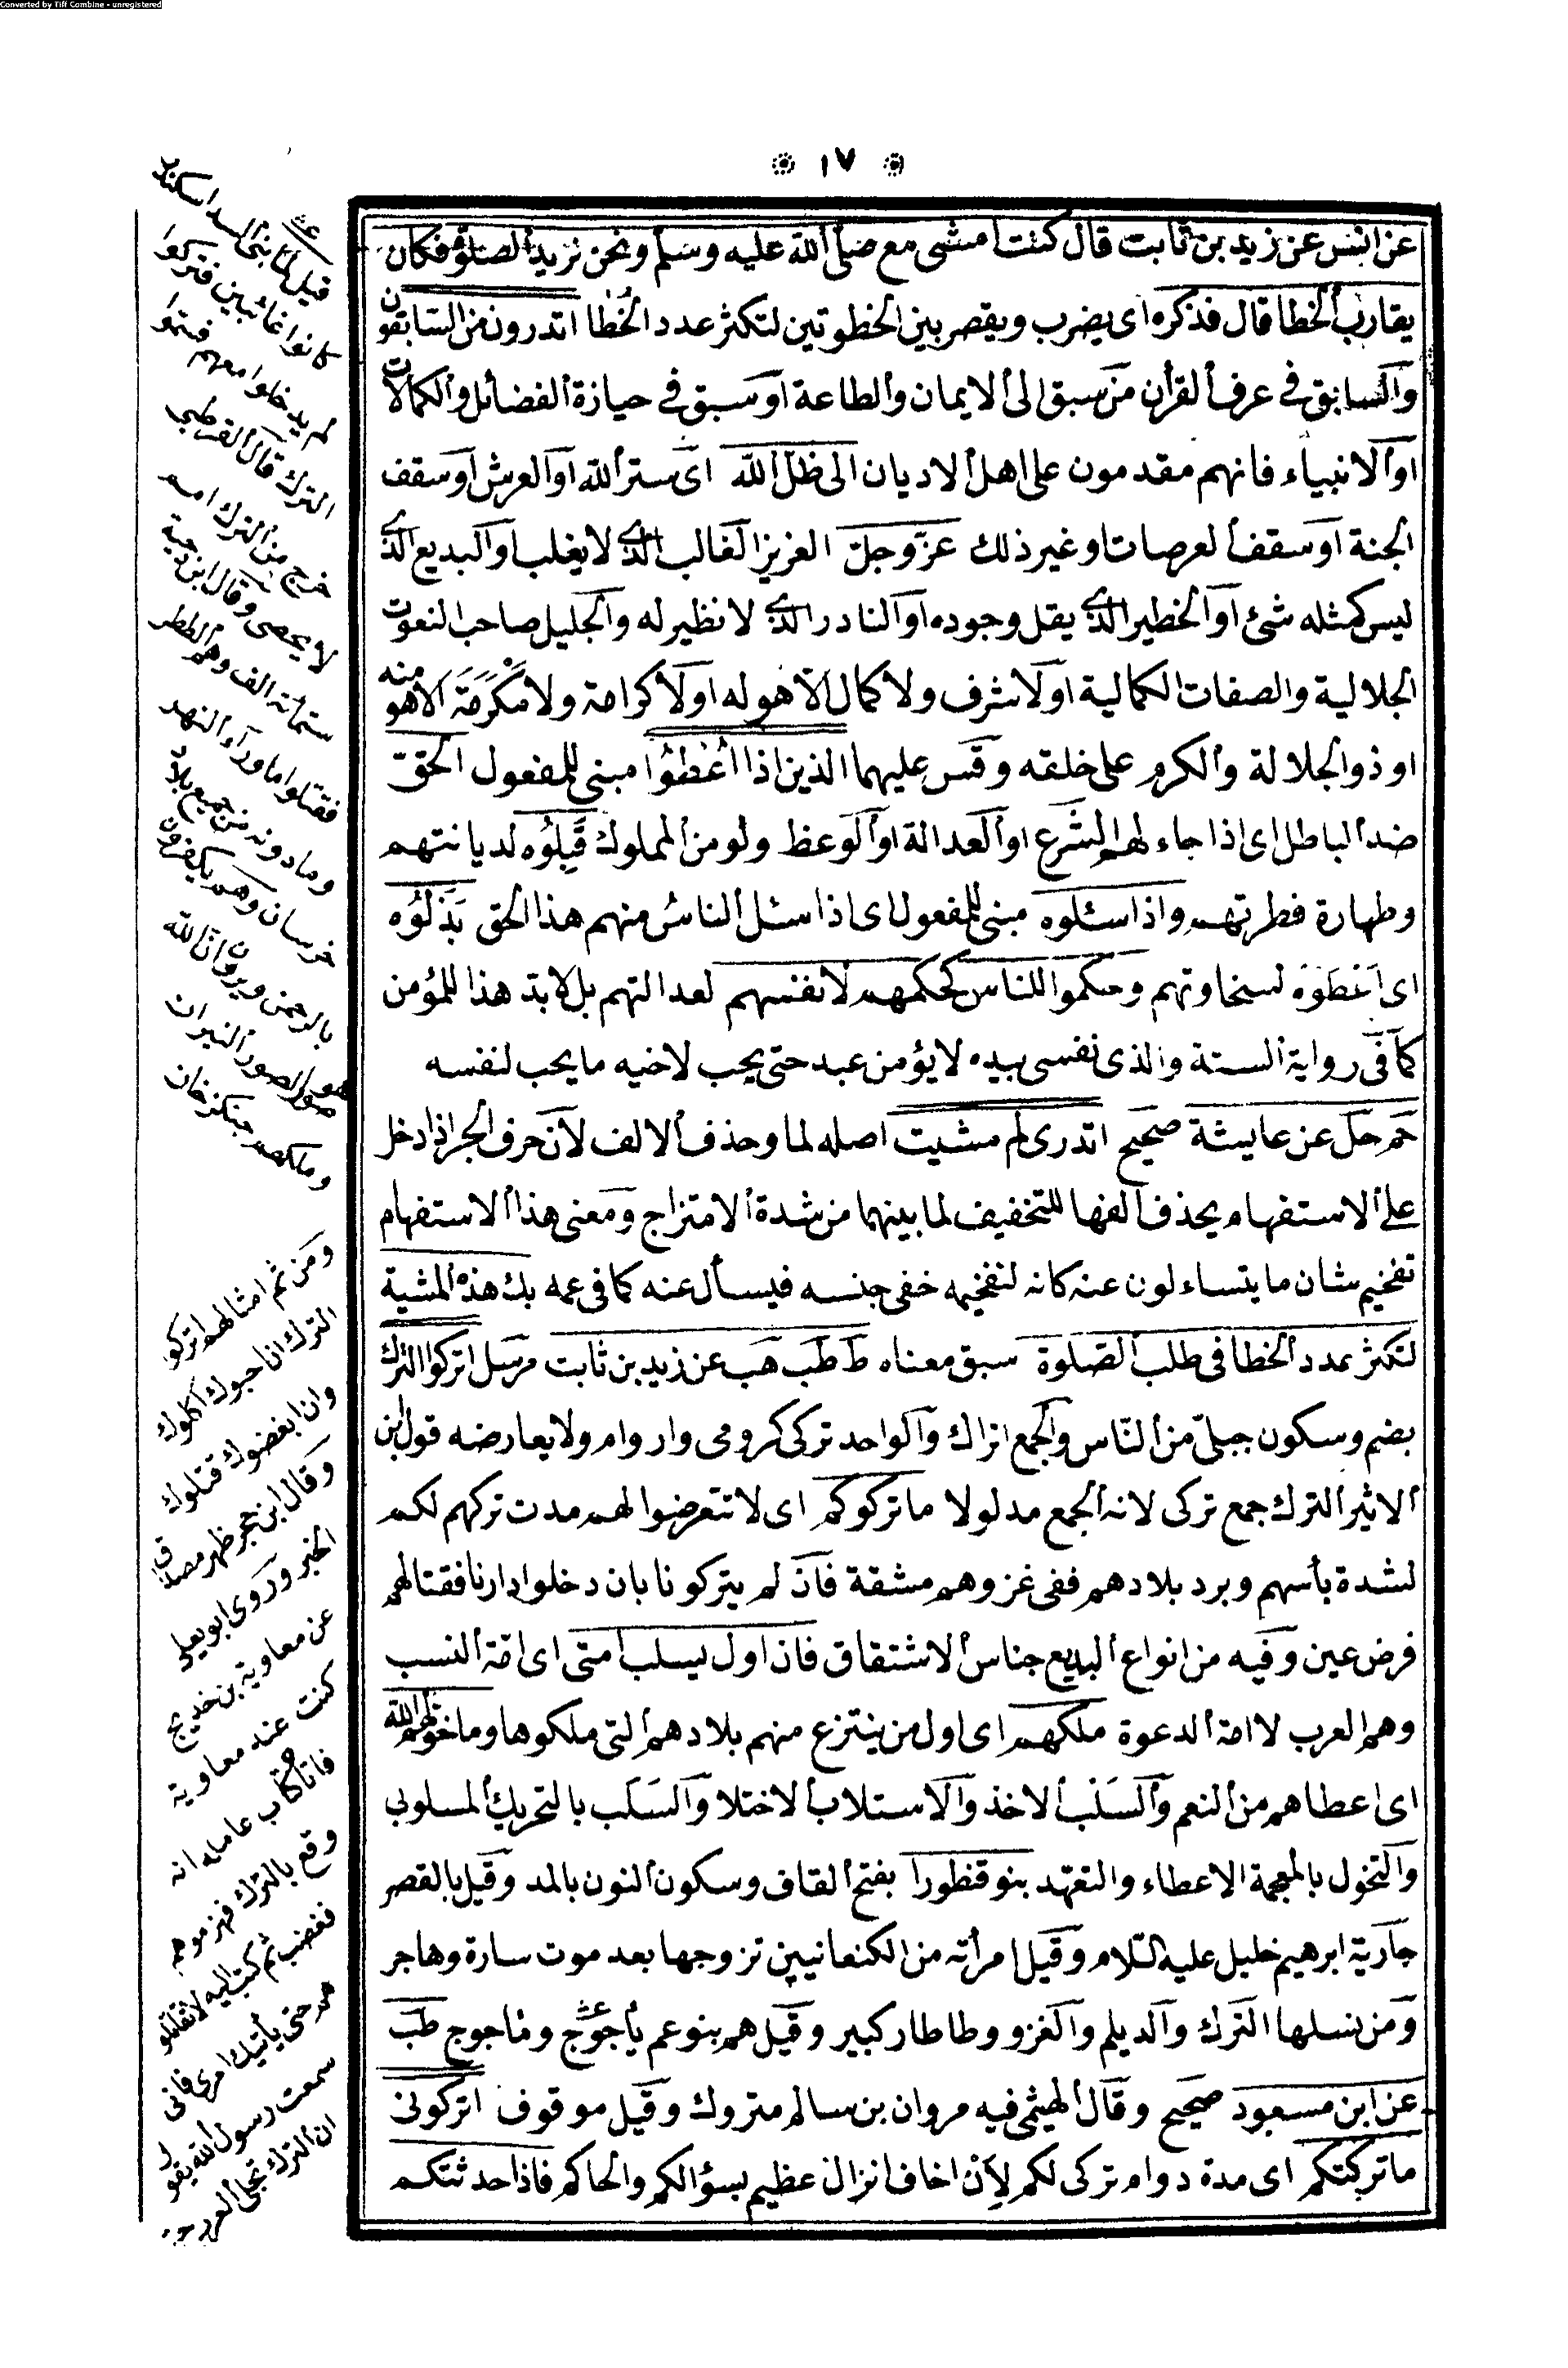 Converted by Tiff Combine - unregistered
١٧
عن انس عن زيد بن ثابت قال كنت امشى مع صلى الله عليه وسلم ونحن نريد الصلوة فكان
يقارب الخطا قال فذكره اى يضرب ويقصر بين الخطوتين لتكثر عدد الخُطا اتدرون من السّابقون
والسابق فى عرف القرأن من سبق الى الايمان والطاعة او سبق فى حيازة الفضائل والكمالات
او الانبياء فانهم مقدمون على اهل الاديان الى ظل الله اى ستر الله او العرش او سقف
الجنة او سقف العرصات او غير ذلك عزّ وجلّ العزيز الغالب الذى لا يغلب او البديع الذى
ليس كمثله شئ او الخطير الذى يقل وجوده او النادر الذى لا نظير له والجليل صاحب النعوت
الجلالية والصفات الكمالية او لا شرف ولا كمال الّا هو له او لا كرامة ولا مَكْرُمَةَ الا هو منه
او ذو الجلالة والكرم على خلقه وقس عليهما الذين اذا اُعْطُوا مبنى للمفعول الحق
ضد الباطل اى اذا جاء لهم الشرع او العدالة او الوعظ ولو من المملوك قَبِلُوه لديانتهم
وطهارة فطرتهم واذا سئلوه مبنى للمفعول اى اذا سئل الناس منهم هذا الحق بَذَلُوه
اى اَعْطَوْهُ لسخاوتهم وحكموا للناس كحكمهم لانفسهم لعدالتهم بل لا بدّ هذا للمؤمن
كما فى رواية الستة والذى نفسى بيده لا يؤمن عبد حتى يحب لاخيه ما يحب لنفسه
حم حل عن عايشة صحيح اتدرى لم مشيت اصله لما وحذف الالف لان حرف الجر اذا دخل
على الاستفهام يحذف الفها للتخفيف لما بينهما من شدة الامتزاج ومعنى هذا الاستفهام
تفخيم شان ما يتساءلون عنه كانه لتفخيمه خفى جنسه فيسأل عنه كما فى عمه بك هذه المشية
لتكثر عدد الخطا فى طلب الصّلوة سبق معناه ط طب هب عن زيد بن ثابت مرسل اتركوا الترك
بضم وسكون جبلّ من النّاس والجمع اتراك والواحد تركى كرومى واروام ولا يعارضه قول ابن
الاثير الترك جمع تركى لانه الجمع مدلولا ما تركوكم اى لا تتعرضوا لهم مدت تركهم لكم
لشدة بأسهم وبرد بلادهم ففى غزوهم مشقة فان لم يتركونا بان دخلوا دارنا فقتالهم
فرض عين وفيه من انواع البديع جناس الاشتقاق فان اول يسلب امتى اى امّة النسب
وهم العرب لا امة الدعوة ملكهم اى اول من ينتزع منهم بلادهم التى ملكوها وما خولهم الله
اى اعطاهم من النعم والسَلْب الاخذ والاستلاب الاختلا والسَلَب بالتحريك المسلوب
والتخول بالمعجمة الاعطاء والتعهّد بنو قنطورا بفتح القاف وسكون النون بالمد وقيل بالقصر
جارية ابرهيم خليل عليه السّلام وقيل امرأته من الكنعانيين تزوجها بعد موت سارة وهاجر
ومن نسلها الترك والديلم والغزو وطاطار كبير وقيل هم بنو عم يأجوج ومأجوج طب
عن ابن مسعود صحيح وقال الهيثمى فيه مروان بن سالم متروك وقيل موقوف اتركونى
ما تركتكم اى مدة دوام تركى لكم لِاَنْ اخاف انزال عظيم بسؤالكم والحاكم فاذا حدثتكم
قيل لما بنى السد اسكندر
كانوا غائبين فتركوا
لم يدخلوا معهم فسموا
الترك قال القرطبى
خرج من الترك امم
لا يحصى وقال ابن دحية
ستمائة الف وهم الططر
فقتلوا ما وراء النهر
وما دونه من جميع بلاد
خرسان وهم يكفرون
بالرحمن ويرون ان الله
هو الصور النيران
وملكهم جنكزخان
ومن ثم امثالهم اتركو
الترك ان احبوك اكلوك
وان ابغضوك قتلوك
وقال ابن حجر ظهر مصداق
الخبر وروى ابو يعلى
عن معاوية بن خديج
كنت عند معاوية
فاتا كتاب عامله انه
وقع بالترك فهزموهم
فغضب ثم كتب اليه لا تقاتلو
هم حتى يأتيك امرى فانى
سمعت رسول الله يقول
ان الترك تجلى العرب